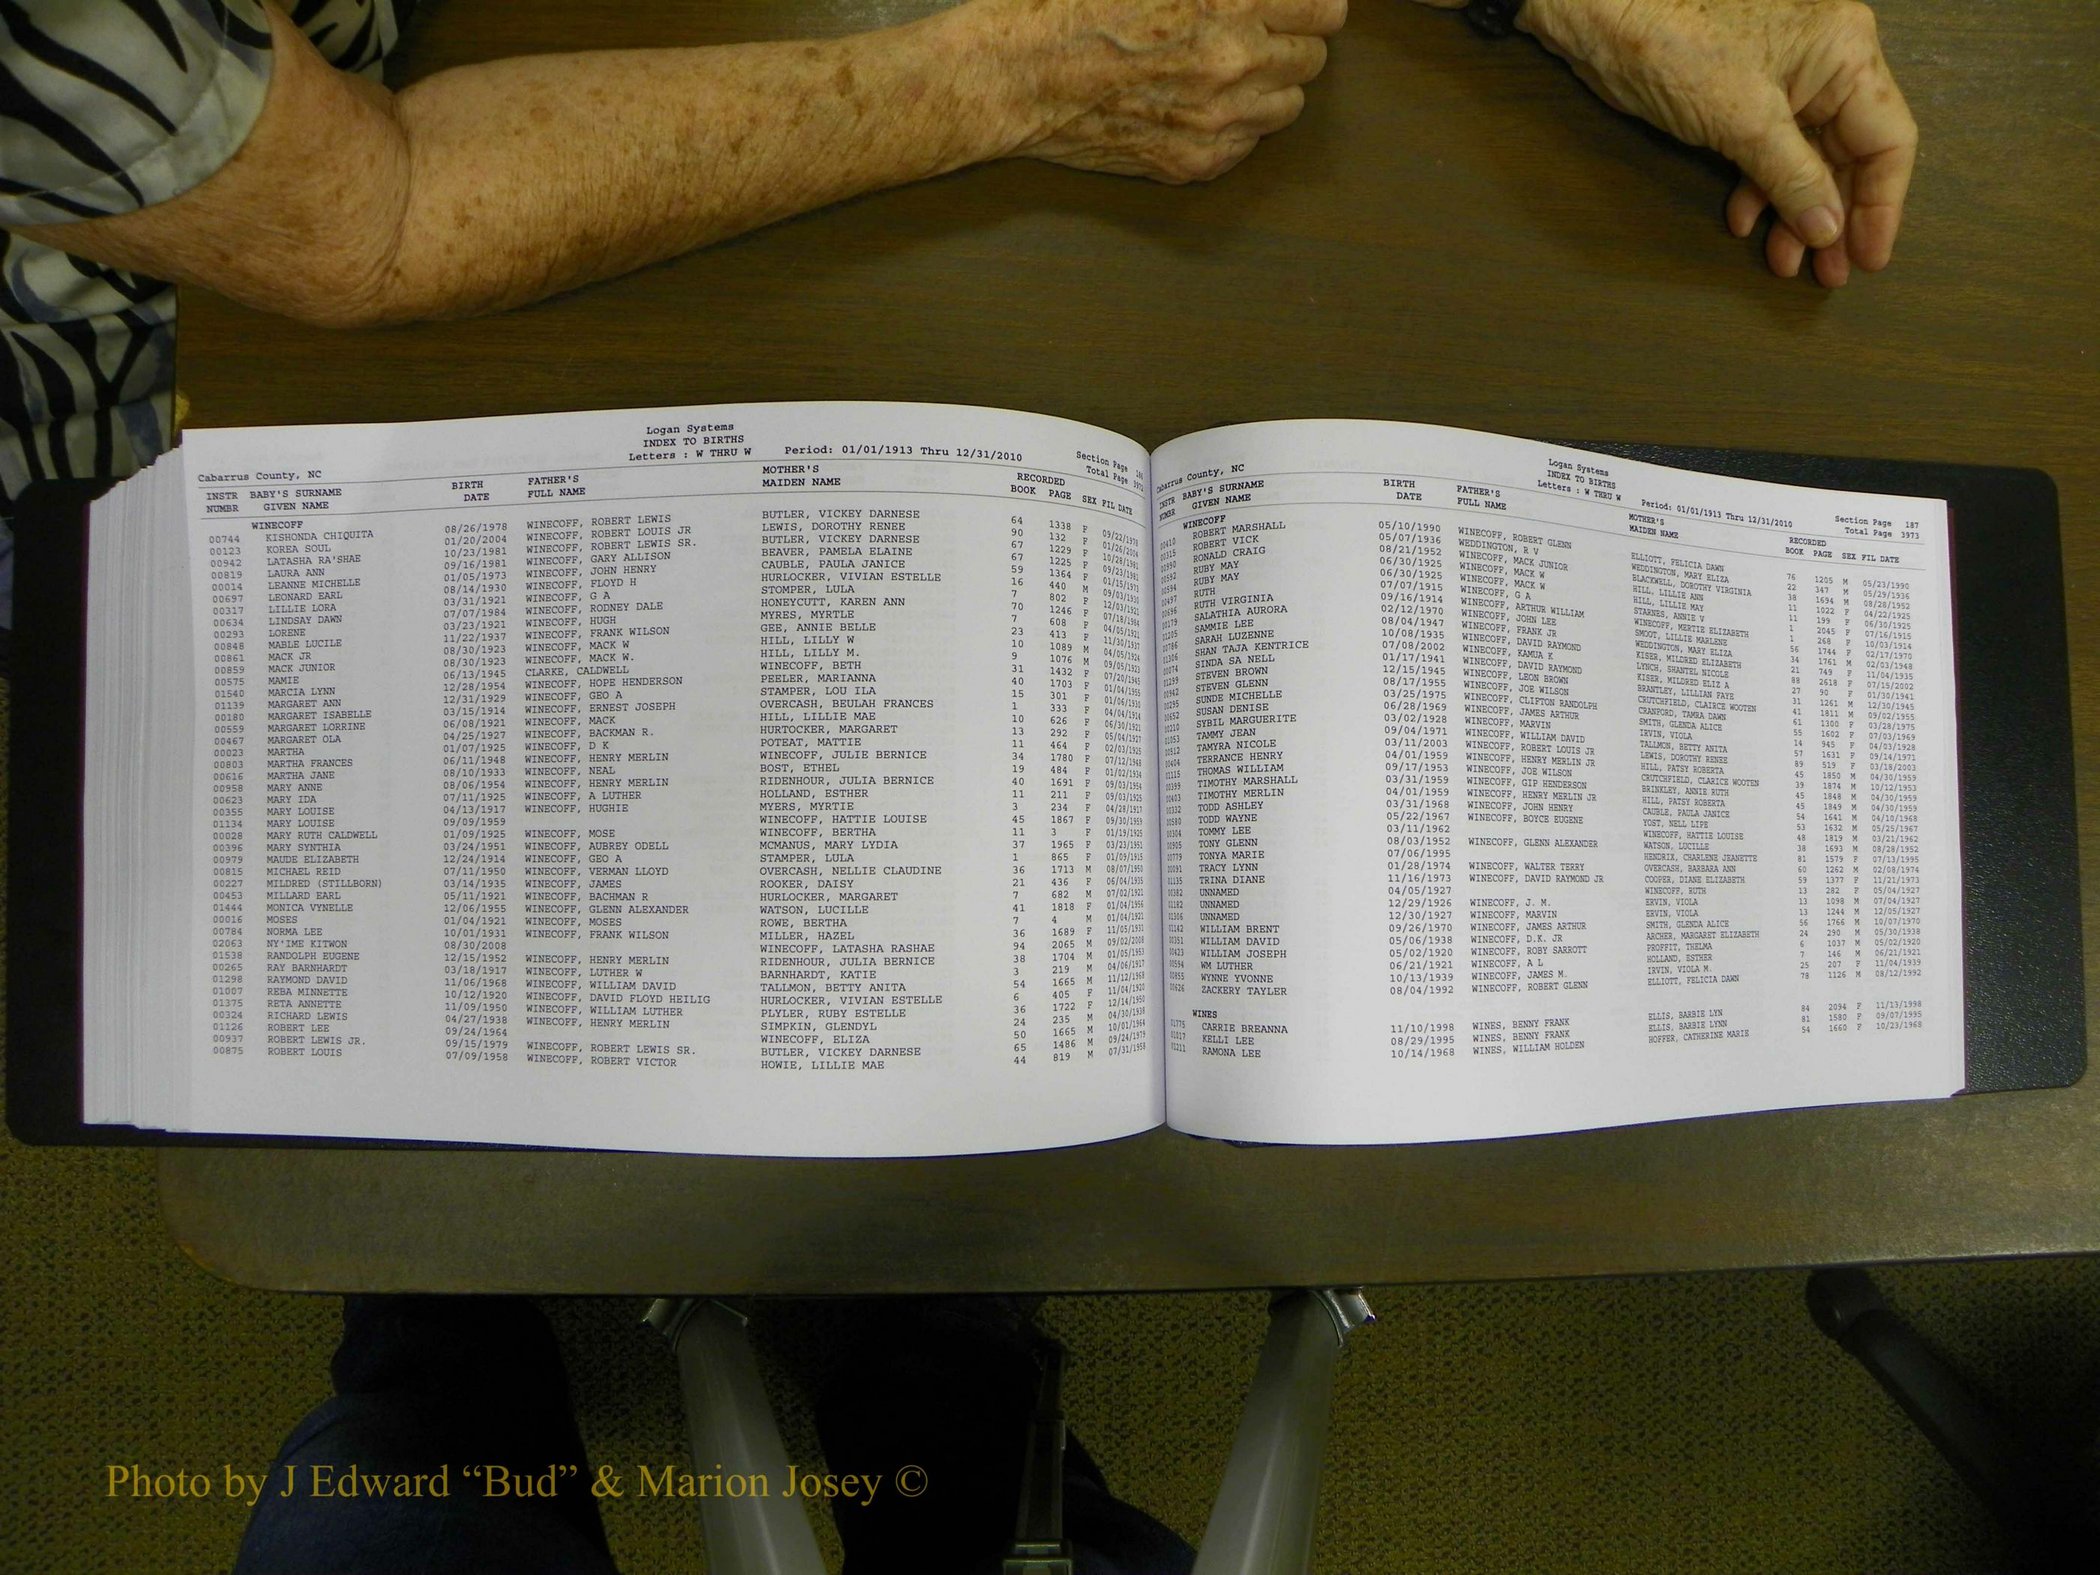 Logan Systems
INDEX TO BIRTHS
Letters : W THRU W Period: 01/01/1913 Thru 12/31/2010 Section Page 186
Cabarrus County, NC Total Page 3972
INSTR BABY'S SURNAME BIRTH FATHER'S MOTHER'S RECORDED
NUMBR GIVEN NAME DATE FULL NAME MAIDEN NAME BOOK PAGE SEX FIL DATE
WINECOFF
00744 KISHONDA CHIQUITA 08/26/1978 WINECOFF, ROBERT LEWIS BUTLER, VICKEY DARNESE 64 1338 F 09/22/1978
00123 KOREA SOUL 01/20/2004 WINECOFF, ROBERT LOUIS JR LEWIS, DOROTHY RENEE 90 132 F 01/26/2004
00942 LATASHA RA'SHAE 10/23/1981 WINECOFF, ROBERT LEWIS SR. BUTLER, VICKEY DARNESE 67 1229 F 10/28/1981
00819 LAURA ANN 09/16/1981 WINECOFF, GARY ALLISON BEAVER, PAMELA ELAINE 67 1225 F 09/23/1981
00014 LEANNE MICHELLE 01/05/1973 WINECOFF, JOHN HENRY CAUBLE, PAULA JANICE 59 1364 F 01/15/1973
00697 LEONARD EARL 08/14/1930 WINECOFF, FLOYD H HURLOCKER, VIVIAN ESTELLE 16 440 M 09/03/1930
00317 LILLIE LORA 03/31/1921 WINECOFF, G A STOMPER, LULA 7 802 F 12/03/1921
00634 LINDSAY DAWN 07/07/1984 WINECOFF, RODNEY DALE HONEYCUTT, KAREN ANN 70 1246 F 07/18/1984
00293 LORENE 03/23/1921 WINECOFF, HUGH MYRES, MYRTLE 7 608 F 04/05/1921
00848 MABLE LUCILE 11/22/1937 WINECOFF, FRANK WILSON GEE, ANNIE BELLE 23 413 F 11/30/1937
00861 MACK JR 08/30/1923 WINECOFF, MACK W HILL, LILLY W 10 1089 M 04/05/1924
00859 MACK JUNIOR 08/30/1923 WINECOFF, MACK W. HILL, LILLY M. 9 1076 M 09/05/1923
00575 MAMIE 06/13/1945 CLARKE, CALDWELL WINECOFF, BETH 31 1432 F 07/20/1945
01540 MARCIA LYNN 12/28/1954 WINECOFF, HOPE HENDERSON PEELER, MARIANNA 40 1703 F 01/04/1955
01139 MARGARET ANN 12/31/1929 WINECOFF, GEO A STAMPER, LOU ILA 15 301 F 01/06/1930
00180 MARGARET ISABELLE 03/15/1914 WINECOFF, ERNEST JOSEPH OVERCASH, BEULAH FRANCES 1 333 F 04/04/1914
00559 MARGARET LORRINE 06/08/1921 WINECOFF, MACK HILL, LILLIE MAE 10 626 F 06/30/1921
00467 MARGARET OLA 04/25/1927 WINECOFF, BACKMAN R. HURTOCKER, MARGARET 13 292 F 05/04/1927
00023 MARTHA 01/07/1925 WINECOFF, D K POTEAT, MATTIE 11 464 F 02/03/1925
00803 MARTHA FRANCES 06/11/1948 WINECOFF, HENRY MERLIN WINECOFF, JULIE BERNICE 34 1780 F 07/12/1948
00616 MARTHA JANE 08/10/1933 WINECOFF, NEAL BOST, ETHEL 19 484 F 01/02/1934
00958 MARY ANNE 08/06/1954 WINECOFF, HENRY MERLIN RIDENHOUR, JULIA BERNICE 40 1691 F 09/03/1954
00623 MARY IDA 07/11/1925 WINECOFF, A LUTHER HOLLAND, ESTHER 11 211 F 09/03/1925
00355 MARY LOUISE 04/13/1917 WINECOFF, HUGHIE MYERS, MYRTIE 3 234 F 04/28/1917
01134 MARY LOUISE 09/09/1959 WINECOFF, HATTIE LOUISE 45 1867 F 09/30/1959
00028 MARY RUTH CALDWELL 01/09/1925 WINECOFF, MOSE WINECOFF, BERTHA 11 3 F 01/19/1925
00396 MARY SYNTHIA 03/24/1951 WINECOFF, AUBREY ODELL MCMANUS, MARY LYDIA 37 1965 F 03/23/1951
00979 MAUDE ELIZABETH 12/24/1914 WINECOFF, GEO A STAMPER, LULA 1 865 F 01/09/1915
00815 MICHAEL REID 07/11/1950 WINECOFF, VERMAN LLOYD OVERCASH, NELLIE CLAUDINE 36 1713 M 08/07/1950
00227 MILDRED (STILLBORN) 03/14/1935 WINECOFF, JAMES ROOKER, DAISY 21 436 F 06/04/1935
00453 MILLARD EARL 05/11/1921 WINECOFF, BACHMAN R HURLOCKER, MARGARET 7 682 M 07/02/1921
01444 MONICA VYNELLE 12/06/1955 WINECOFF, GLENN ALEXANDER WATSON, LUCILLE 41 1818 F 01/04/1956
00016 MOSES 01/04/1921 WINECOFF, MOSES ROWE, BERTHA 7 4 M 01/04/1921
00784 NORMA LEE 10/01/1931 WINECOFF, FRANK WILSON MILLER, HAZEL 36 1689 F 11/05/1931
02063 NY'IME KITWON 08/30/2008 WINECOFF, LATASHA RASHAE 94 2065 M 09/02/2008
01538 RANDOLPH EUGENE 12/15/1952 WINECOFF, HENRY MERLIN RIDENHOUR, JULIA BERNICE 38 1704 M 01/05/1953
00265 RAY BARNHARDT 03/18/1917 WINECOFF, LUTHER W BARNHARDT, KATIE 3 219 M 04/06/1917
01298 RAYMOND DAVID 11/06/1968 WINECOFF, WILLIAM DAVID TALLMON, BETTY ANITA 54 1665 M 11/12/1968
01007 REBA MINNETTE 10/12/1920 WINECOFF, DAVID FLOYD HEILIG HURLOCKER, VIVIAN ESTELLE 6 405 F 11/04/1920
01375 RETA ANNETTE 11/09/1950 WINECOFF, WILLIAM LUTHER PLYLER, RUBY ESTELLE 36 1722 F 12/14/1950
00324 RICHARD LEWIS 04/27/1938 WINECOFF, HENRY MERLIN SIMPKIN, GLENDYL 24 235 M 04/30/1938
01126 ROBERT LEE 09/24/1964 WINECOFF, ELIZA 50 1665 M 10/01/1964
00937 ROBERT LEWIS JR. 09/15/1979 WINECOFF, ROBERT LEWIS SR. BUTLER, VICKEY DARNESE 65 1486 M 09/24/1979
00875 ROBERT LOUIS 07/09/1958 WINECOFF, ROBERT VICTOR HOWIE, LILLIE MAE 44 819 M 07/31/1958
Logan Systems
INDEX TO BIRTHS
Letters : W THRU W Period: 01/01/1913 Thru 12/31/2010 Section Page 187
Cabarrus County, NC Total Page 3973
INSTR BABY'S SURNAME BIRTH FATHER'S MOTHER'S RECORDED
NUMBR GIVEN NAME DATE FULL NAME MAIDEN NAME BOOK PAGE SEX FIL DATE
WINECOFF
00410 ROBERT MARSHALL 05/10/1990 WINECOFF, ROBERT GLENN ELLIOTT, FELICIA DAWN 76 1205 M 05/23/1990
00315 ROBERT VICK 05/07/1936 WEDDINGTON, R V WEDDINGTON, MARY ELIZA 22 347 M 05/29/1936
00990 RONALD CRAIG 08/21/1952 WINECOFF, MACK JUNIOR BLACKWELL, DOROTHY VIRGINIA 38 1694 M 08/28/1952
00592 RUBY MAY 06/30/1925 WINECOFF, MACK W HILL, LILLIE ANN 11 1022 F 04/22/1925
00594 RUBY MAY 06/30/1925 WINECOFF, MACK W HILL, LILLIE MAY 11 199 F 06/30/1925
00497 RUTH 07/07/1915 WINECOFF, G A STARNES, ANNIE V 1 2045 F 07/16/1915
00696 RUTH VIRGINIA 09/16/1914 WINECOFF, ARTHUR WILLIAM WINECOFF, MERTIE ELIZABETH 1 268 F 10/03/1914
00179 SALATHIA AURORA 02/12/1970 WINECOFF, JOHN LEE SMOOT, LILLIE MARLENE 56 1744 F 02/17/1970
01205 SAMMIE LEE 08/04/1947 WINECOFF, FRANK JR WEDDINGTON, MARY ELIZA 34 1761 M 02/03/1948
00786 SARAH LUZENNE 10/08/1935 WINECOFF, DAVID RAYMOND KISER, MILDRED ELIZABETH 21 749 F 11/04/1935
01306 SHAN TAJA KENTRICE 07/08/2002 WINECOFF, KAMUA K LYNCH, SHANTEL NICOLE 88 2618 F 07/15/2002
00074 SINDA SA NELL 01/17/1941 WINECOFF, DAVID RAYMOND KISER, MILDRED ELIZ A 27 90 F 01/30/1941
01299 STEVEN BROWN 12/15/1945 WINECOFF, LEON BROWN BRANTLEY, LILLIAN FAYE 31 1261 M 12/30/1945
00942 STEVEN GLENN 08/17/1955 WINECOFF, JOE WILSON CRUTCHFIELD, CLAIRCE WOOTEN 41 1811 M 09/02/1955
00295 SUNDE MICHELLE 03/25/1975 WINECOFF, CLIFTON RANDOLPH CRANFORD, TAMRA DAWN 61 1300 F 03/28/1975
00652 SUSAN DENISE 06/28/1969 WINECOFF, JAMES ARTHUR SMITH, GLENDA ALICE 55 1602 F 07/03/1969
00210 SYBIL MARGUERITE 03/02/1928 WINECOFF, MARVIN IRVIN, VIOLA 14 945 F 04/03/1928
01053 TAMMY JEAN 09/04/1971 WINECOFF, WILLIAM DAVID TALLMON, BETTY ANITA 57 1631 F 09/14/1971
00512 TAMYRA NICOLE 03/11/2003 WINECOFF, ROBERT LOUIS JR LEWIS, DOROTHY RENEE 89 519 F 03/18/2003
00404 TERRANCE HENRY 04/01/1959 WINECOFF, HENRY MERLIN JR HILL, PATSY ROBERTA 45 1850 M 04/30/1959
01115 THOMAS WILLIAM 09/17/1953 WINECOFF, JOE WILSON CRUTCHFIELD, CLARICE WOOTEN 39 1874 M 10/12/1953
00399 TIMOTHY MARSHALL 03/31/1959 WINECOFF, GIP HENDERSON BRINKLEY, ANNIE RUTH 45 1848 M 04/30/1959
00403 TIMOTHY MERLIN 04/01/1959 WINECOFF, HENRY MERLIN JR HILL, PATSY ROBERTA 45 1849 M 04/30/1959
00332 TODD ASHLEY 03/31/1968 WINECOFF, JOHN HENRY CAUBLE, PAULA JANICE 54 1641 M 04/10/1968
00580 TODD WAYNE 05/22/1967 WINECOFF, BOYCE EUGENE YOST, NELL LIPE 53 1632 M 05/25/1967
00304 TOMMY LEE 03/11/1962 WINECOFF, HATTIE LOUISE 48 1819 M 03/21/1962
00905 TONY GLENN 08/03/1952 WINECOFF, GLENN ALEXANDER WATSON, LUCILLE 38 1693 M 08/28/1952
00779 TONYA MARIE 07/06/1995 HENDRIX, CHARLENE JEANETTE 81 1579 F 07/13/1995
00091 TRACY LYNN 01/28/1974 WINECOFF, WALTER TERRY OVERCASH, BARBARA ANN 60 1262 M 02/08/1974
01135 TRINA DIANE 11/16/1973 WINECOFF, DAVID RAYMOND JR COOPER, DIANE ELIZABETH 59 1377 F 11/21/1973
00382 UNNAMED 04/05/1927 WINECOFF, RUTH 13 282 F 05/04/1927
01182 UNNAMED 12/29/1926 WINECOFF, J. M. ERVIN, VIOLA 13 1098 M 07/04/1927
01306 UNNAMED 12/30/1927 WINECOFF, MARVIN ERVIN, VIOLA 13 1244 M 12/05/1927
01142 WILLIAM BRENT 09/26/1970 WINECOFF, JAMES ARTHUR SMITH, GLENDA ALICE 56 1766 M 10/07/1970
00351 WILLIAM DAVID 05/06/1938 WINECOFF, D.K. JR ARCHER, MARGARET ELIZABETH 24 290 M 05/30/1938
00423 WILLIAM JOSEPH 05/02/1920 WINECOFF, ROBY SARROTT PROFFIT, THELMA 6 1037 M 05/02/1920
00594 WM LUTHER 06/21/1921 WINECOFF, A L HOLLAND, ESTHER 7 146 M 06/21/1921
00855 WYNNE YVONNE 10/13/1939 WINECOFF, JAMES M. IRVIN, VIOLA M. 25 207 F 11/04/1939
00626 ZACKERY TAYLER 08/04/1992 WINECOFF, ROBERT GLENN ELLIOTT, FELICIA DAWN 78 1126 M 08/12/1992
WINES
01775 CARRIE BREANNA 11/10/1998 WINES, BENNY FRANK ELLIS, BARBIE LYN 84 2094 F 11/13/1998
01017 KELLI LEE 08/29/1995 WINES, BENNY FRANK ELLIS, BARBIE LYNN 81 1580 F 09/07/1995
01211 RAMONA LEE 10/14/1968 WINES, WILLIAM HOLDEN HOFFER, CATHERINE MARIE 54 1660 F 10/23/1968
Photo by J Edward “Bud” & Marion Josey ©